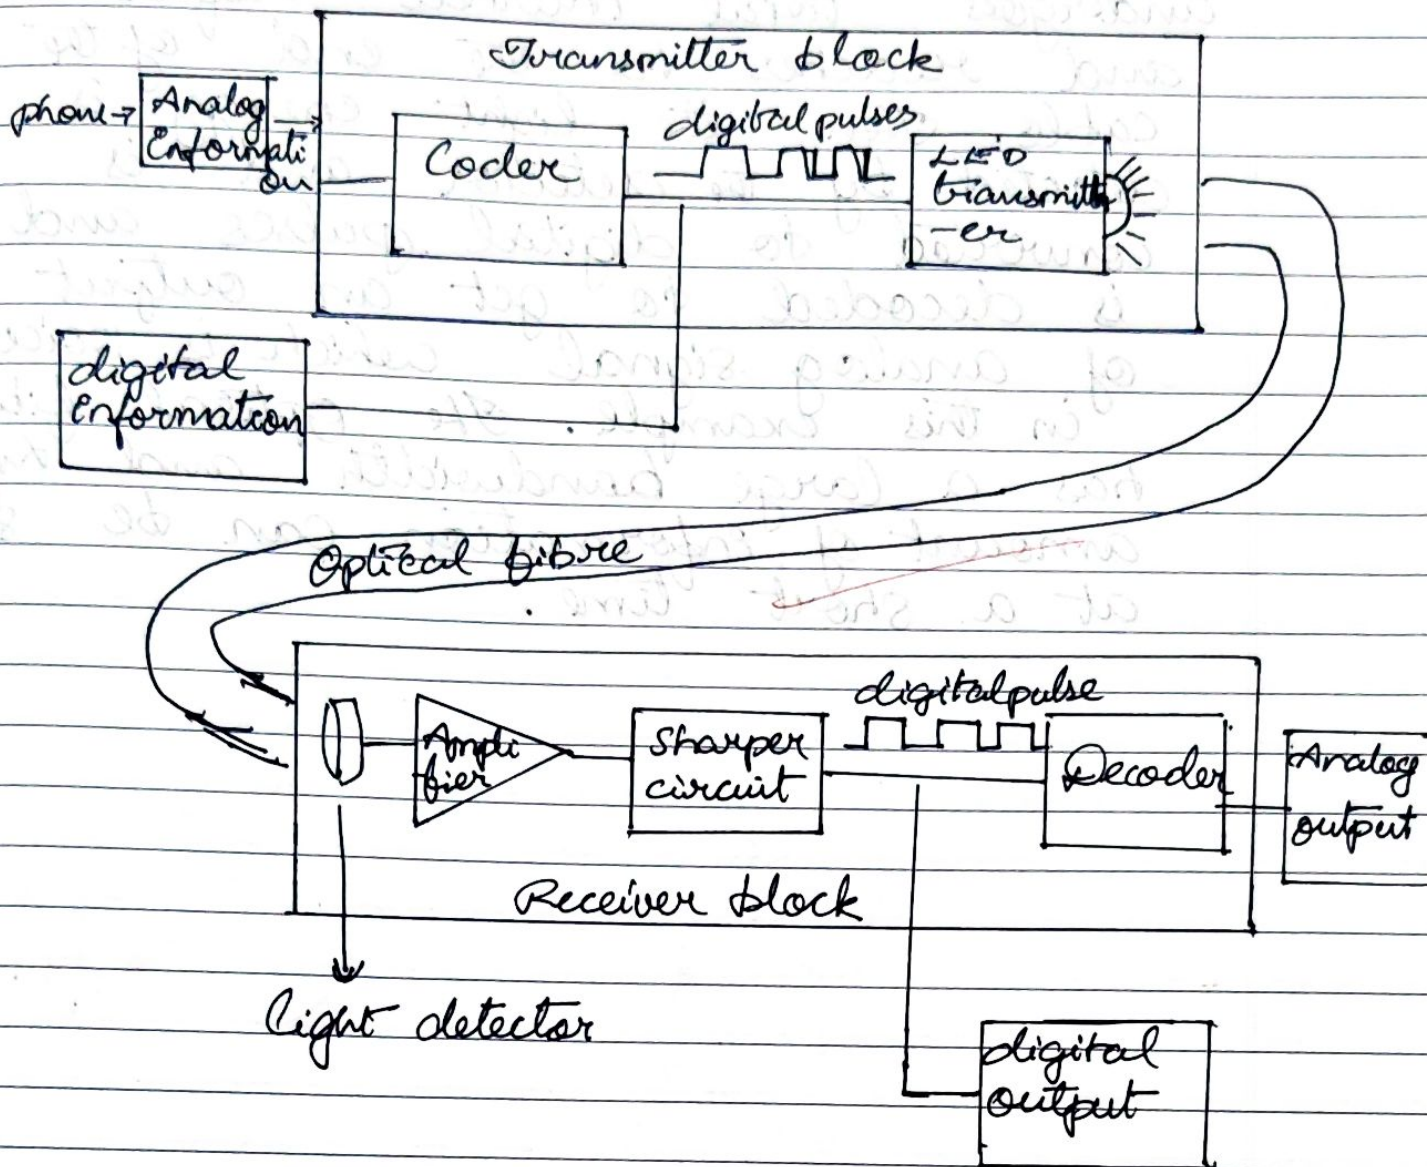 Transmitter block
phone→
Analog
Informati
on
Coder
digital pulses
LED
transmitt
-er
digital
Information
Optical fibre
digital pulse
Ampli
fier
sharper
circuit
Decoder
Analog
output
Receiver block
light detector
digital
output